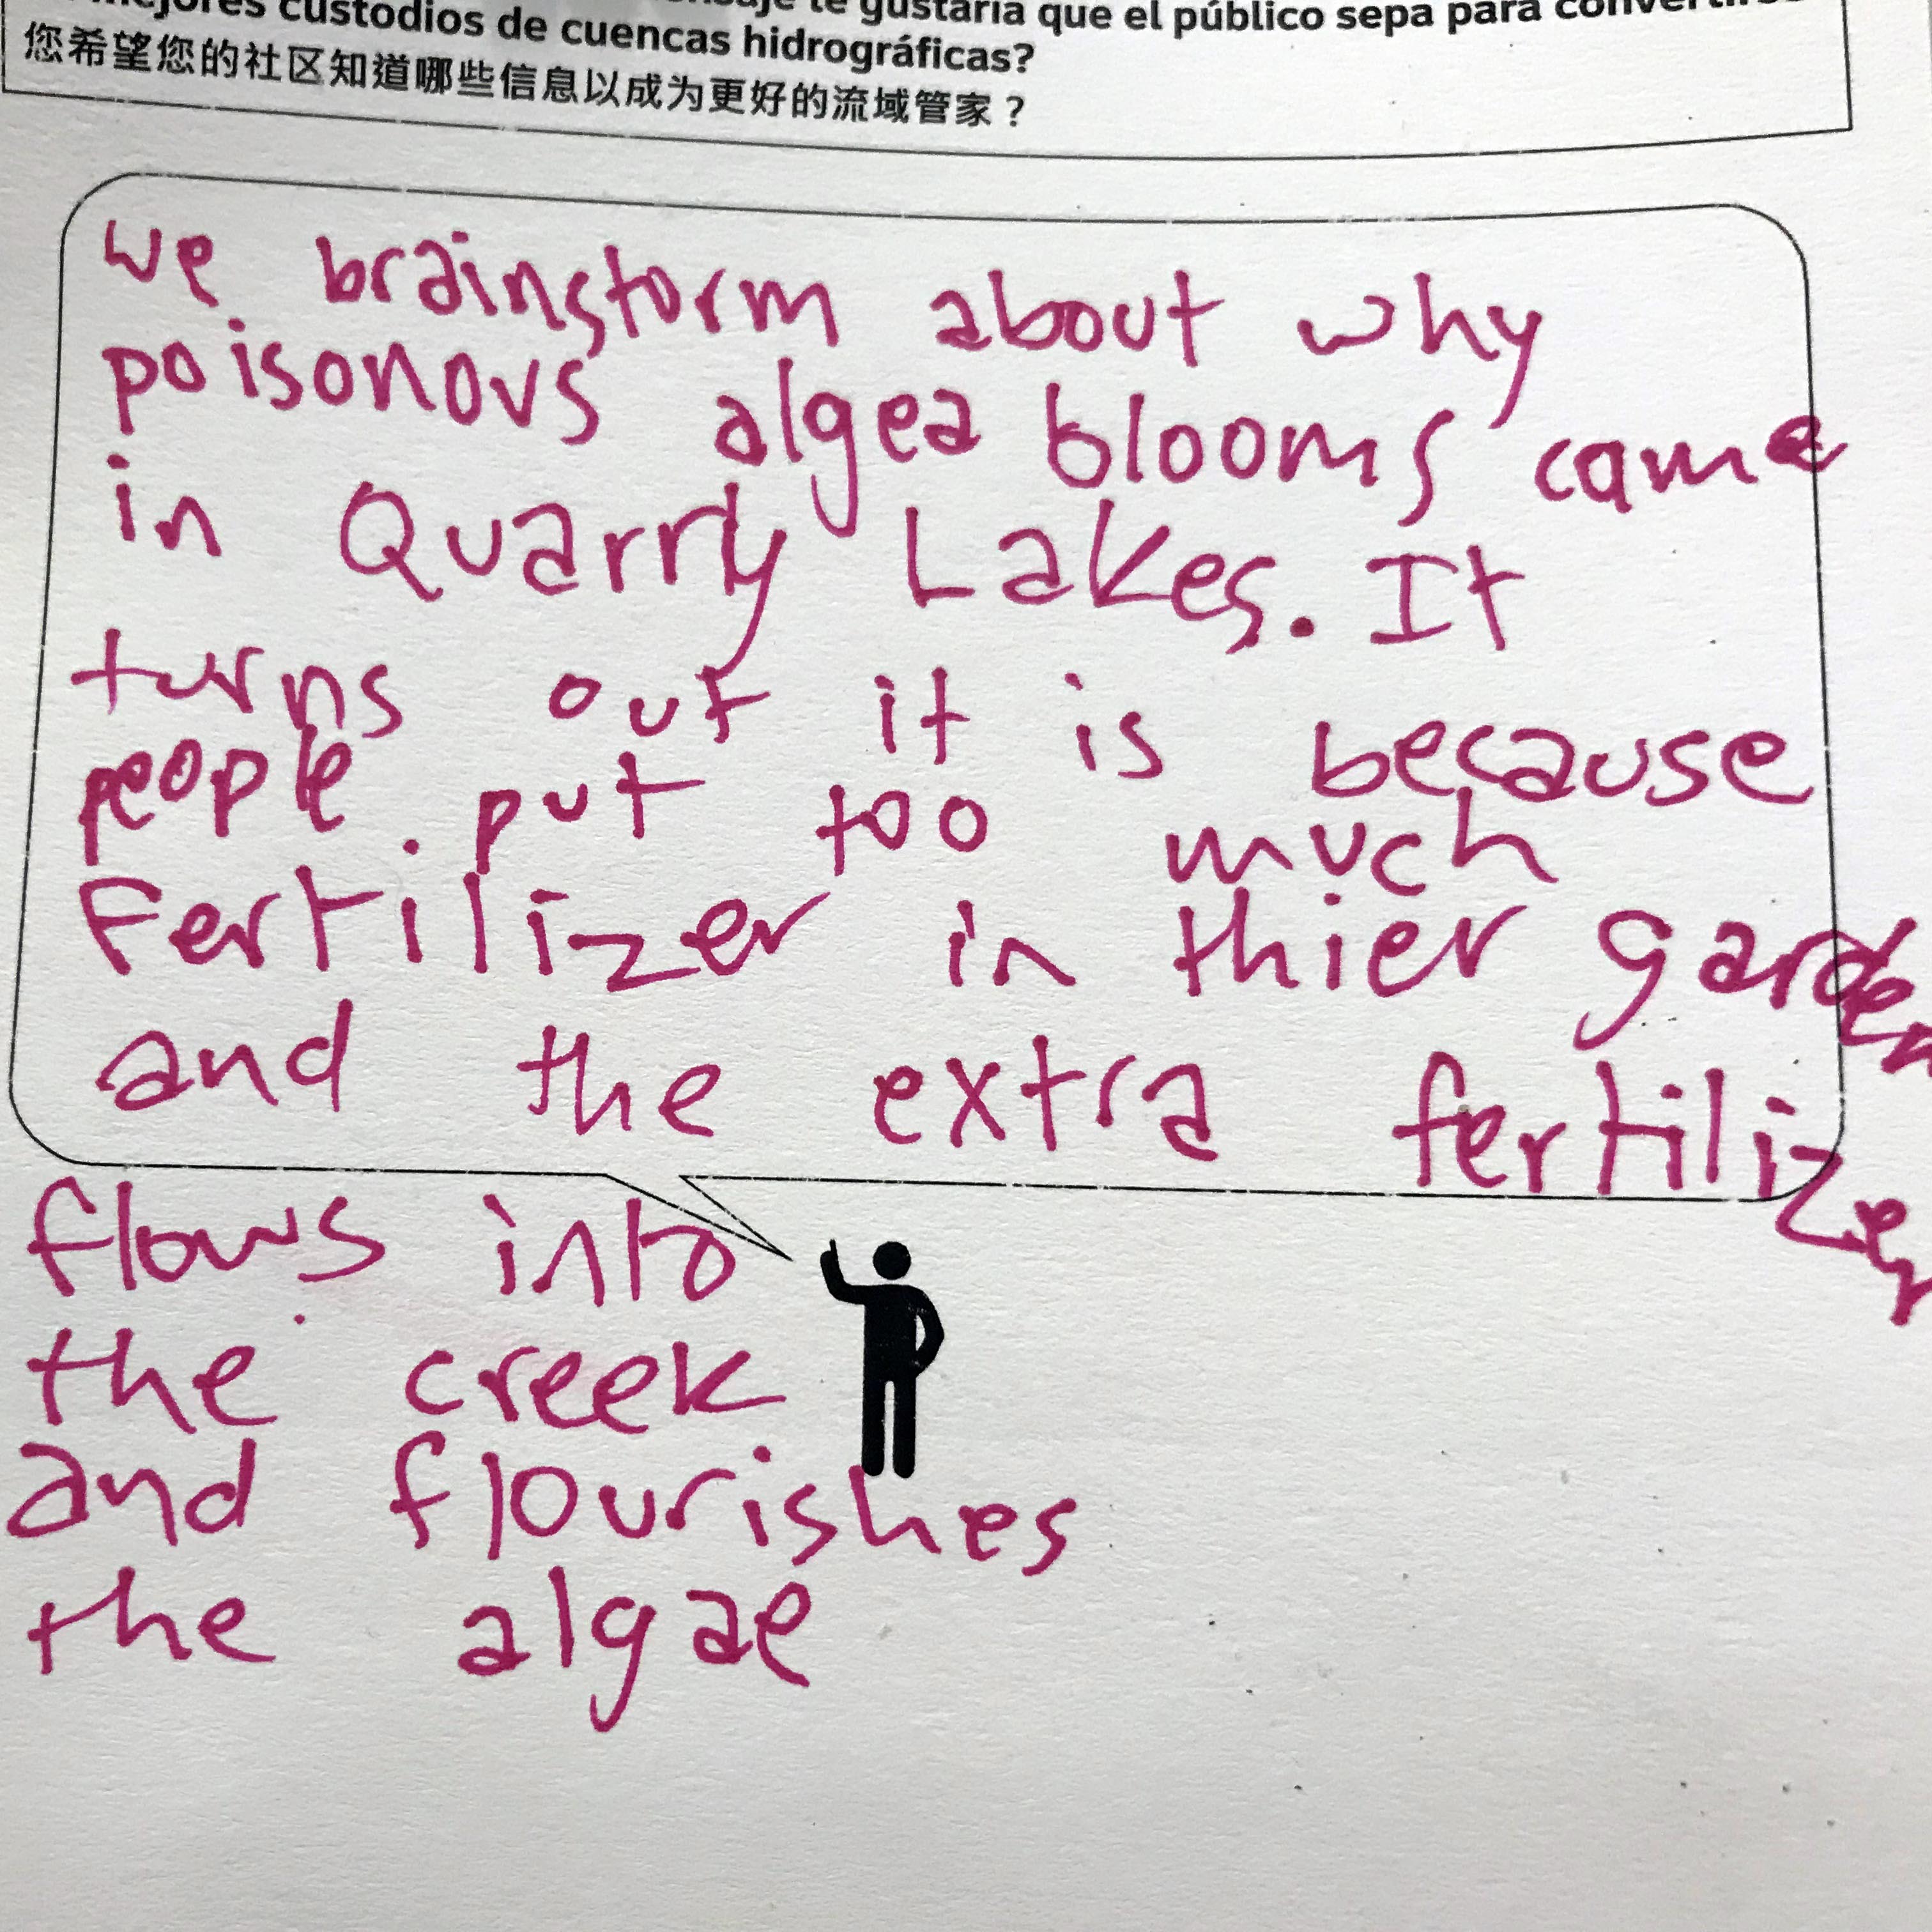 mejores custodios de cuencas hidrográficas?
le gustaría que el público sepa para
您希望您的社区知道哪些信息以成为更好的流域管家？
we brainstorm about why
poisonous algea blooms came
in Quarry Lakes. It
turns out it is because
people put too much
Fertilizer in thier garden
and the extra fertilizer
flows into
the creek
and flourishes
the algae